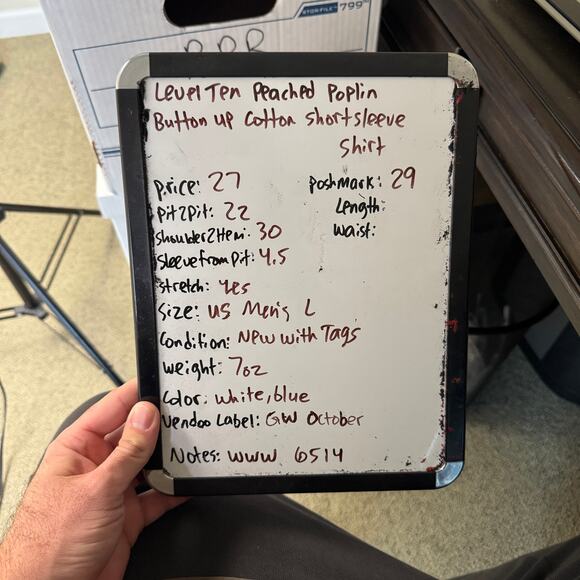 STOR/FILE™ 799
Level Ten Peached Poplin
Button up Cotton shortsleeve
Shirt
price: 27
poshmark: 29
pit2pit: 22
Length:
shoulder2Hem: 30
waist:
sleevefrompit: 4.5
stretch: yes
Size: US Men's L
Condition: New with Tags
weight: 7oz
Color: white, blue
Vendoo Label: GW October
Notes: www 6514